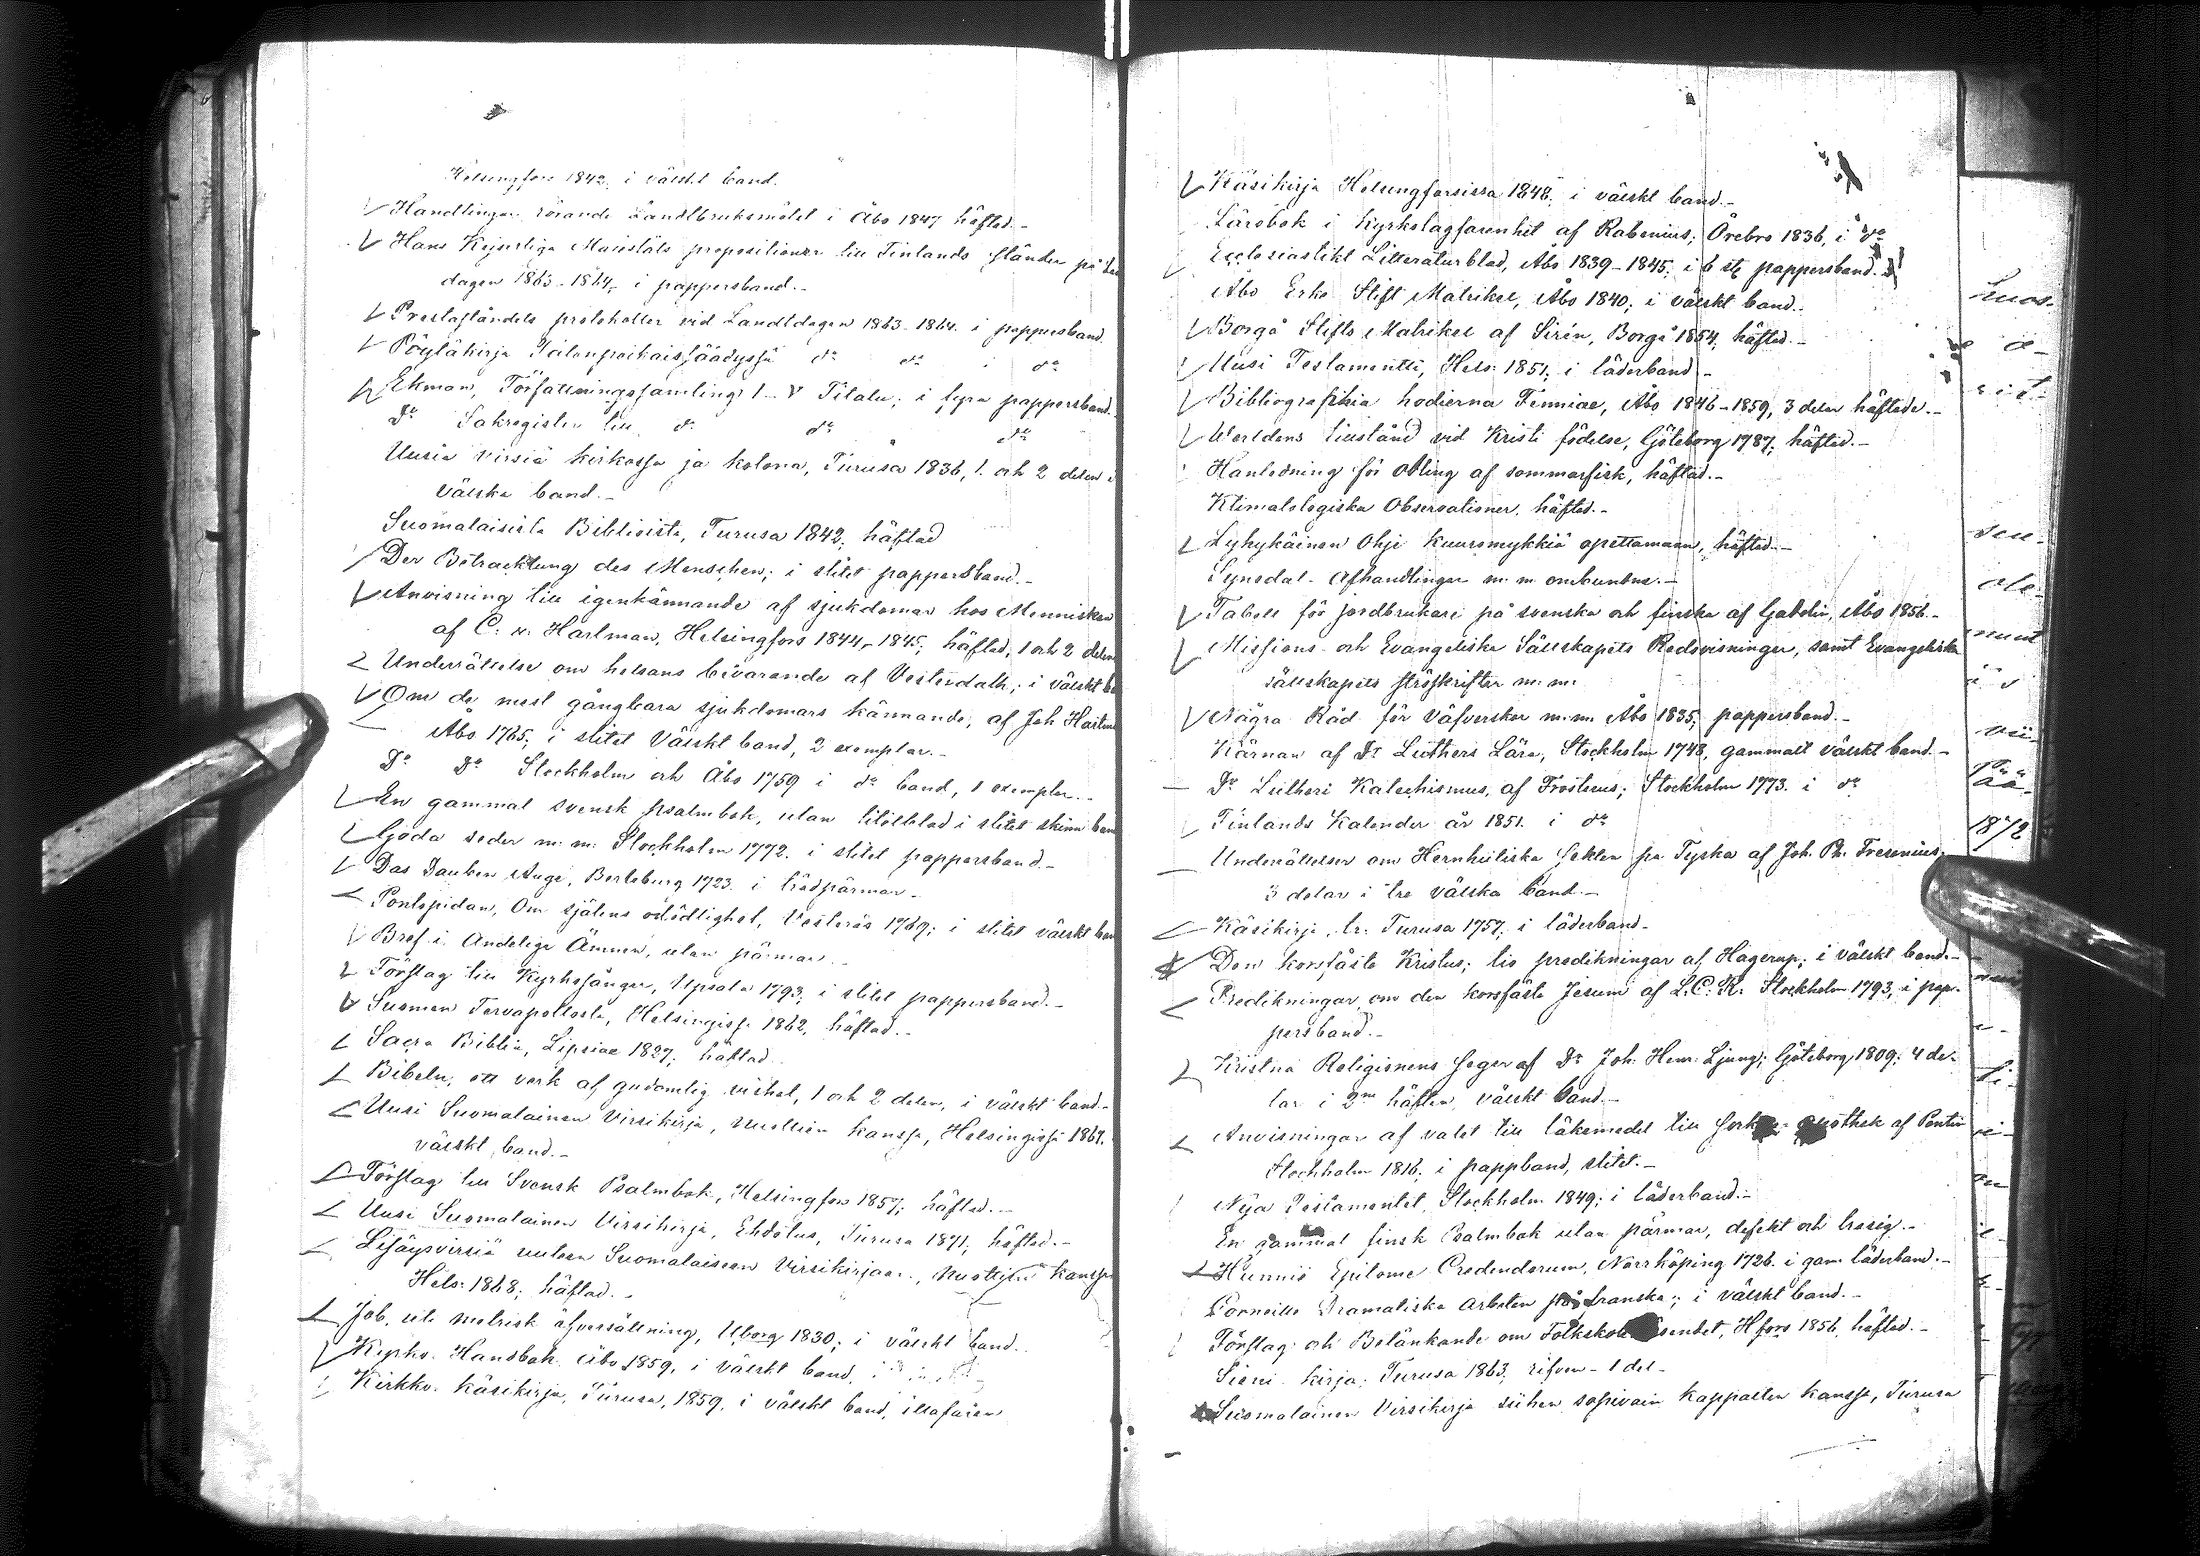 Helsingfors 1842, i välskt band.
Handlingar rörande Landtbruksmötet i Åbo 1847 häftad.-
Hans Kejserliga Majestäts propositioner till Finlands ständer på
dagen 1863-1864, i pappersband.-
Presteståndets protokoller vid Landtdagen 1863-1864. i pappersband.
Pöytäkirja Talonpoikaissäädyssä do do i do
Ekman, Författningssamling 1-V Titeln; i fyra pappersband.
Do Sakregister till do do do
Uusia virsiä kirkossa ja kotona, Turusa 1836, 1. och 2 delen i
välska band.-
Suomalaisista Biblioista, Turusa 1842; häftad
Der Betracktung des Menschen; i slitet pappersband.-
Anvisning till igenkännande af sjukdomar hos Menniskan
af C. v. Hartman, Helsingfors 1844-1845; häftad, 1 och 2 delen
Underrättelse om helsans bevarande af Vesterdalh; i välskt
Om de mest gångbara sjukdomars kännande, af Joh Hartm
Åbo 1765; i slitet Välskt band, 2 exemplar.-
Do Do Stockholm och Åbo 1759 i do band, 1 exemplar.-
En gammal svensk psalmbok, utan titelblad i slitet skinn
Goda seder m. m. Stockholm 1772. i slitet pappersband.-
Das Tauben Auge, Berleburg 1723. i trädpärmar.-
Pontopidan, Om själens odödlighet, Vesterås 1769; i slitet välskt
Bref i Andeliga Ämnen, utan pärmar.-
Förslag till Kyrkosånger, Upsala 1793; i slitet pappersband.-
Suomen Tervapolttosta, Helsingissä 1862, häftad.-
Sacra Biblia, Lipsiae 1827; häftad
Bibeln, ett verk af gudomlig vishet, 1 och 2 delen, i välskt band.-
Uusi Suomalainen Virsikirja, nuottien kanssa, Helsingissä 1867.
välskt band.-
Förslag till Svensk Psalmbok, Helsingfors 1857; häftad.-
Uusi Suomalainen Virsikirja, Ehdotus, Turusa 1871; häftad.-
Lisäysvirsiä uuteen Suomalaiseen Virsikirjaan, nuottien kanssa
Hels: 1868; häftad.
Job, uti metrisk öfversättning, Uborg 1830; i välskt band.
Kyrko Handbok Åbo 1859, i välskt band,
Kirkko käsikirja, Turusa, 1859, i välskt band, illafaren
Käsikirja Helsingforsissa 1848; i välskt band.-
Lärobok i Kyrkolagfarenhet af Rabenius; Örebro 1836, i do
Ecclesiastikt Litteraturblad, Åbo 1839-1845; i 6 st pappersband.
Åbo Erke Stift Matrikel, Åbo 1840; i välskt band.
Borgå Stifts Matrikel af Sirén, Borgå 1854; häftad.-
Uusi Testamentti, Hels: 1851; i läderband.-
Bibliografhia hodierna Fenniae, Åbo 1846-1859, 3 delar häftade.-
Werldens tillstånd vid Kristi födelse, Göteborg 1787; häftad.-
Hanledning för odling af sommarfisk, häftad.-
Klimatologiska Observationer, häftad.-
Lyhykäinen Ohje kuuromykkiä opettamaan, häftad.-
Synodal-Afhandlingar m. m. ombundne.-
Tabell för jordbrukare på svenska och finska af Gadolin, Åbo 1856.-
Missions och Evangeliska Sällskapets Redovisningar, samt Evangeliska
sällskapets ströskrifter m. m.
Några Råd för Väfverskor m. m. Åbo 1835; pappersband.-
Kärnan af Dr Luthers Lära, Stockholm 1748, gammalt välskt band.-
Dr Lutheri Katechismus, af Frosterus; Stockholm 1773. i do
Finlands Kalender år 1851. i do
Underrättelser om Hernhutiska Sekten fr. Tyska af Joh. Ph. Fresenius.
3 delar i tre välska band.-
Käsikirja, tr. Turusa 1757; i läderband.-
Den korsfäste Kristus; tio predikningar af Hagerup; i välskt band.-
Predikningar om den korsfäste Jesum af L. C. R. Stockholm 1793, i pap-
persband.-
Kristna Religionens Seger af Dr Joh. Henr. Ljung; Göteborg 1809; 4 de-
lar i 2ne häften, välskt band.-
Anvisningar af valet till läkemedel till af Pontin
Stockholm 1816; i pappband, slitet.-
Nya Testamentet, Stockholm 1849; i läderband.-
En gammal finsk Psalmbok utan pärmar, defekt och trasig.-
Hunnii Epitome Credendorum, Norrköping 1726. i gam. läderband.-
Corneille Dramatiska arbeten på franska; i välskt band.-
Förslag och Betänkande om Folkskole Hfors 1856, häftad.-
Sieni kirja, Turusa 1863, 1 del-
Suomalainen Virsikirja siihen sopivain kappalten kanssa, Turusa
1872